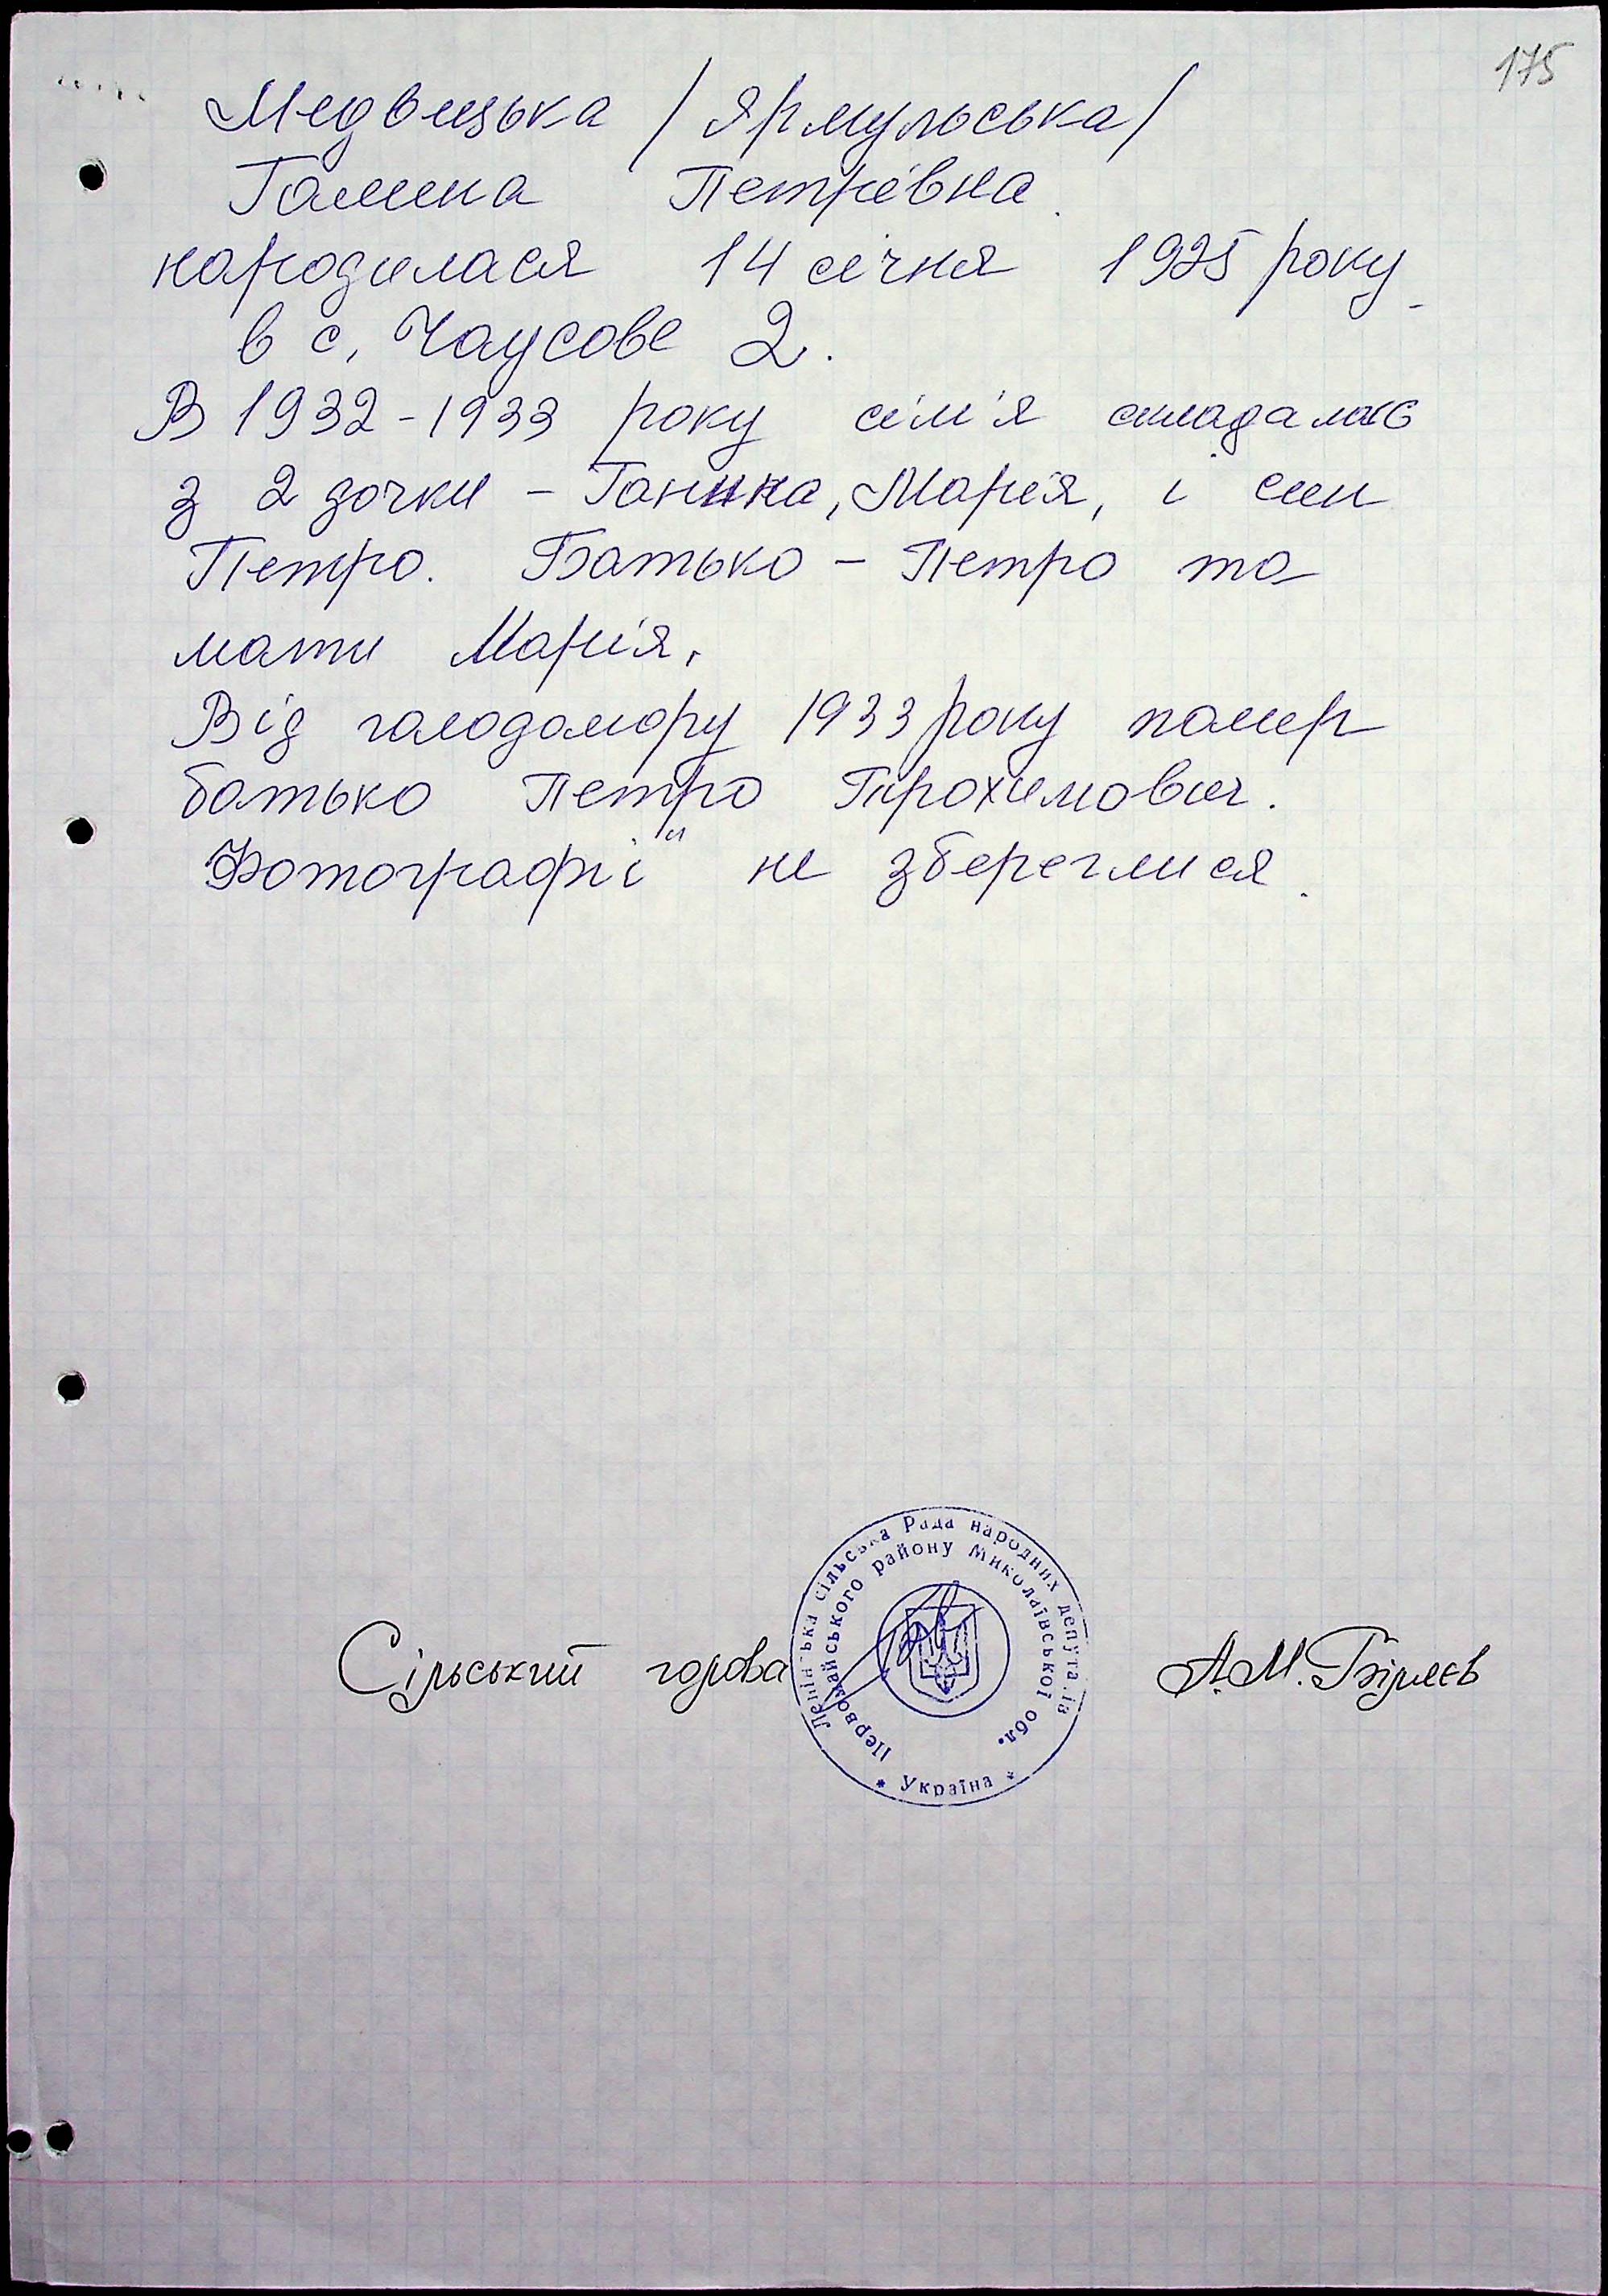 175
Медвицька / Ярмульська /
Галина Петрівна.
народилася 14 січня 1925 року
в с. Чаусове 2.
В 1932-1933 року сім'я складалас
з 2 дочки - Ганнна, Марія, і син
Петро. Батько - Петро та
мати Марія.
Від голодомору 1933 року помер
батько Петро Трохимович.
Фотографії не збереглися.
Сільський голова
А.М. Біляєв
сільська Рада народних
Первомайського району Миколаївської обл.
* Україна *